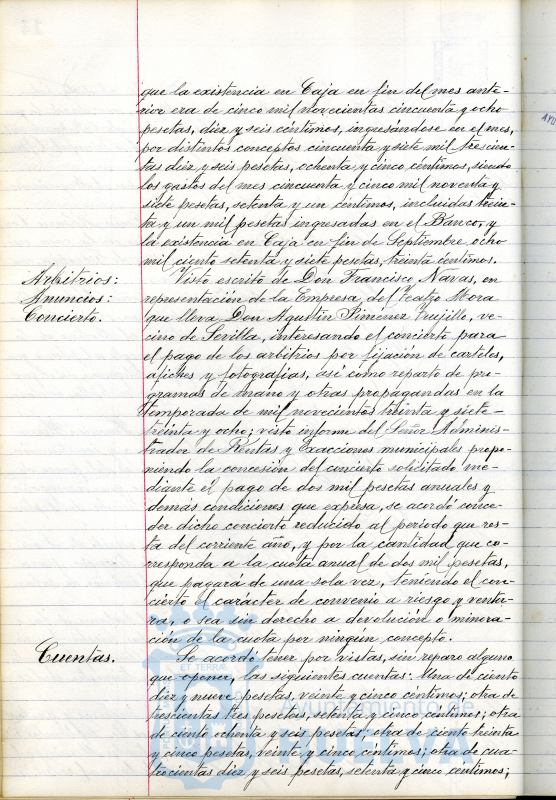 que la existencia en Caja en fin del mes ante-
rior era de cinco mil novecientas cincuenta y ocho
pesetas, diez y seis céntimos, ingresándose en el mes,
por distintos conceptos cincuenta y siete mil trescien-
tas diez y seis pesetas, ochenta y cinco céntimos, siendo
los gastos del mes cincuenta y cinco mil noventa y
siete pesetas, setenta y un céntimos, incluidas trein-
ta y un mil pesetas ingresadas en el Banco, y
la existencia en Caja en fin de Septiembre, ocho
mil ciento setenta y siete pesetas, treinta céntimos.
Arbitrios: Visto escrito de Don Francisco Navas, en
Anuncios: representación de la Empresa, del Teatro Mora
Concierto. que lleva Don Agustín Jiménez Trujillo, ve-
cino de Sevilla, interesando el concierto para
el pago de los arbitrios por fijación de carteles,
afiches y fotografías, así como reparto de pro-
gramas de mano y otras propagandas en la
temporada de mil novecientos treinta y siete-
treinta y ocho; visto informe del Señor Adminis-
trador de Rentas y Exacciones municipales propo-
niendo la concesión del concierto solicitado me-
diante el pago de dos mil pesetas anuales y
demás condiciones que expresa, se acordó conce-
der dicho concierto reducido al periodo que res-
ta del corriente año, y por la cantidad que co-
rresponda a la cuota anual de dos mil pesetas,
que pagará de una sola vez, teniendo el con-
cierto el carácter de convenio a riesgo y ventu-
ra, o sea sin derecho a devolución o minora-
ción de la cuota por ningún concepto.
Cuentas. Se acordó tener por vistas, sin reparo alguno
que oponer, las siguientes cuentas: Una de ciento
diez y nueve pesetas, veinte y cinco céntimos; otra de
trescientas tres pesetas, setenta y cinco céntimos; otra
de ciento ochenta y seis pesetas; otra de ciento treinta
y cinco pesetas, veinte y cinco céntimos; otra de cua-
trocientas diez y seis pesetas, setenta y cinco céntimos;
ET TERRÆ
Ayuntamiento de